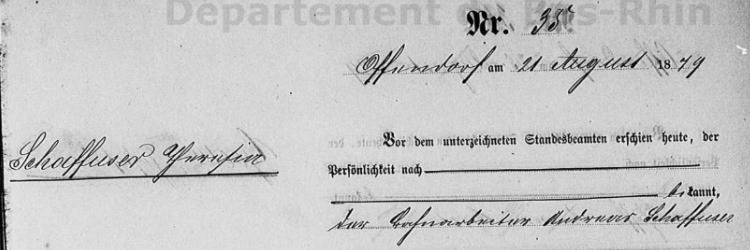 Departement du Bas-Rhin
Nr. 35.
Offendorf am 21 August 1879
Schaffuser Theresia
Vor dem unterzeichneten Standesbeamten erschien heute, der
Persönlichkeit nach
bekannt,
der Bahnarbeiter Andreas Schaffuser